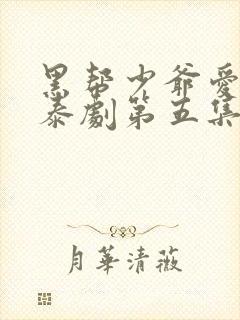 黑帮少爷爱
泰劇第五集
月華清薇